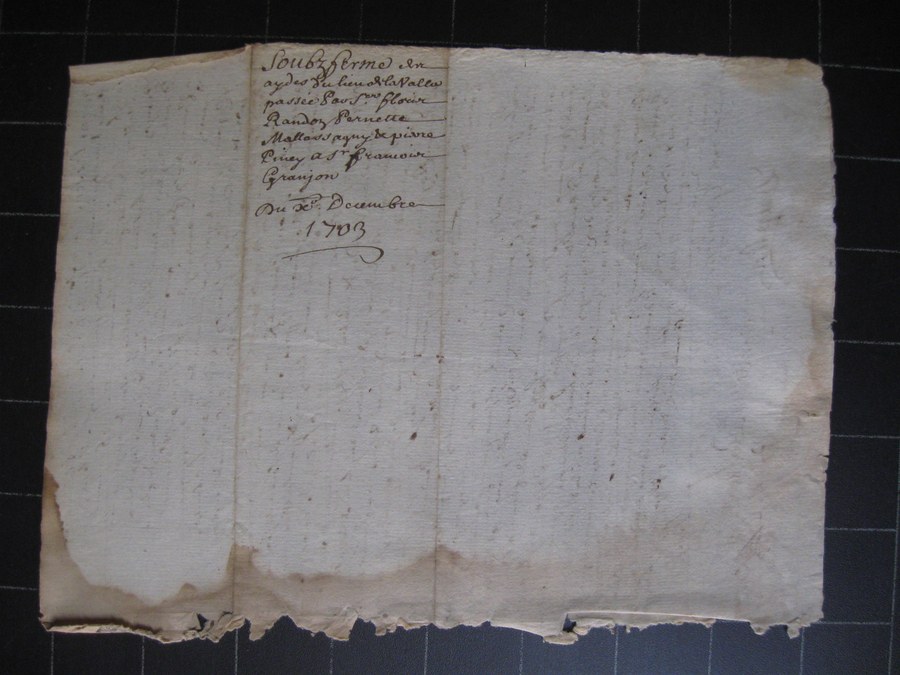 Soubzferme des
aydes du lieu de la Valla
passée par Sr. flouir
Randon Pernette
Mallassagny & pierre
Piney a Sr francois
Granjon
Du xe. Decembre
1703